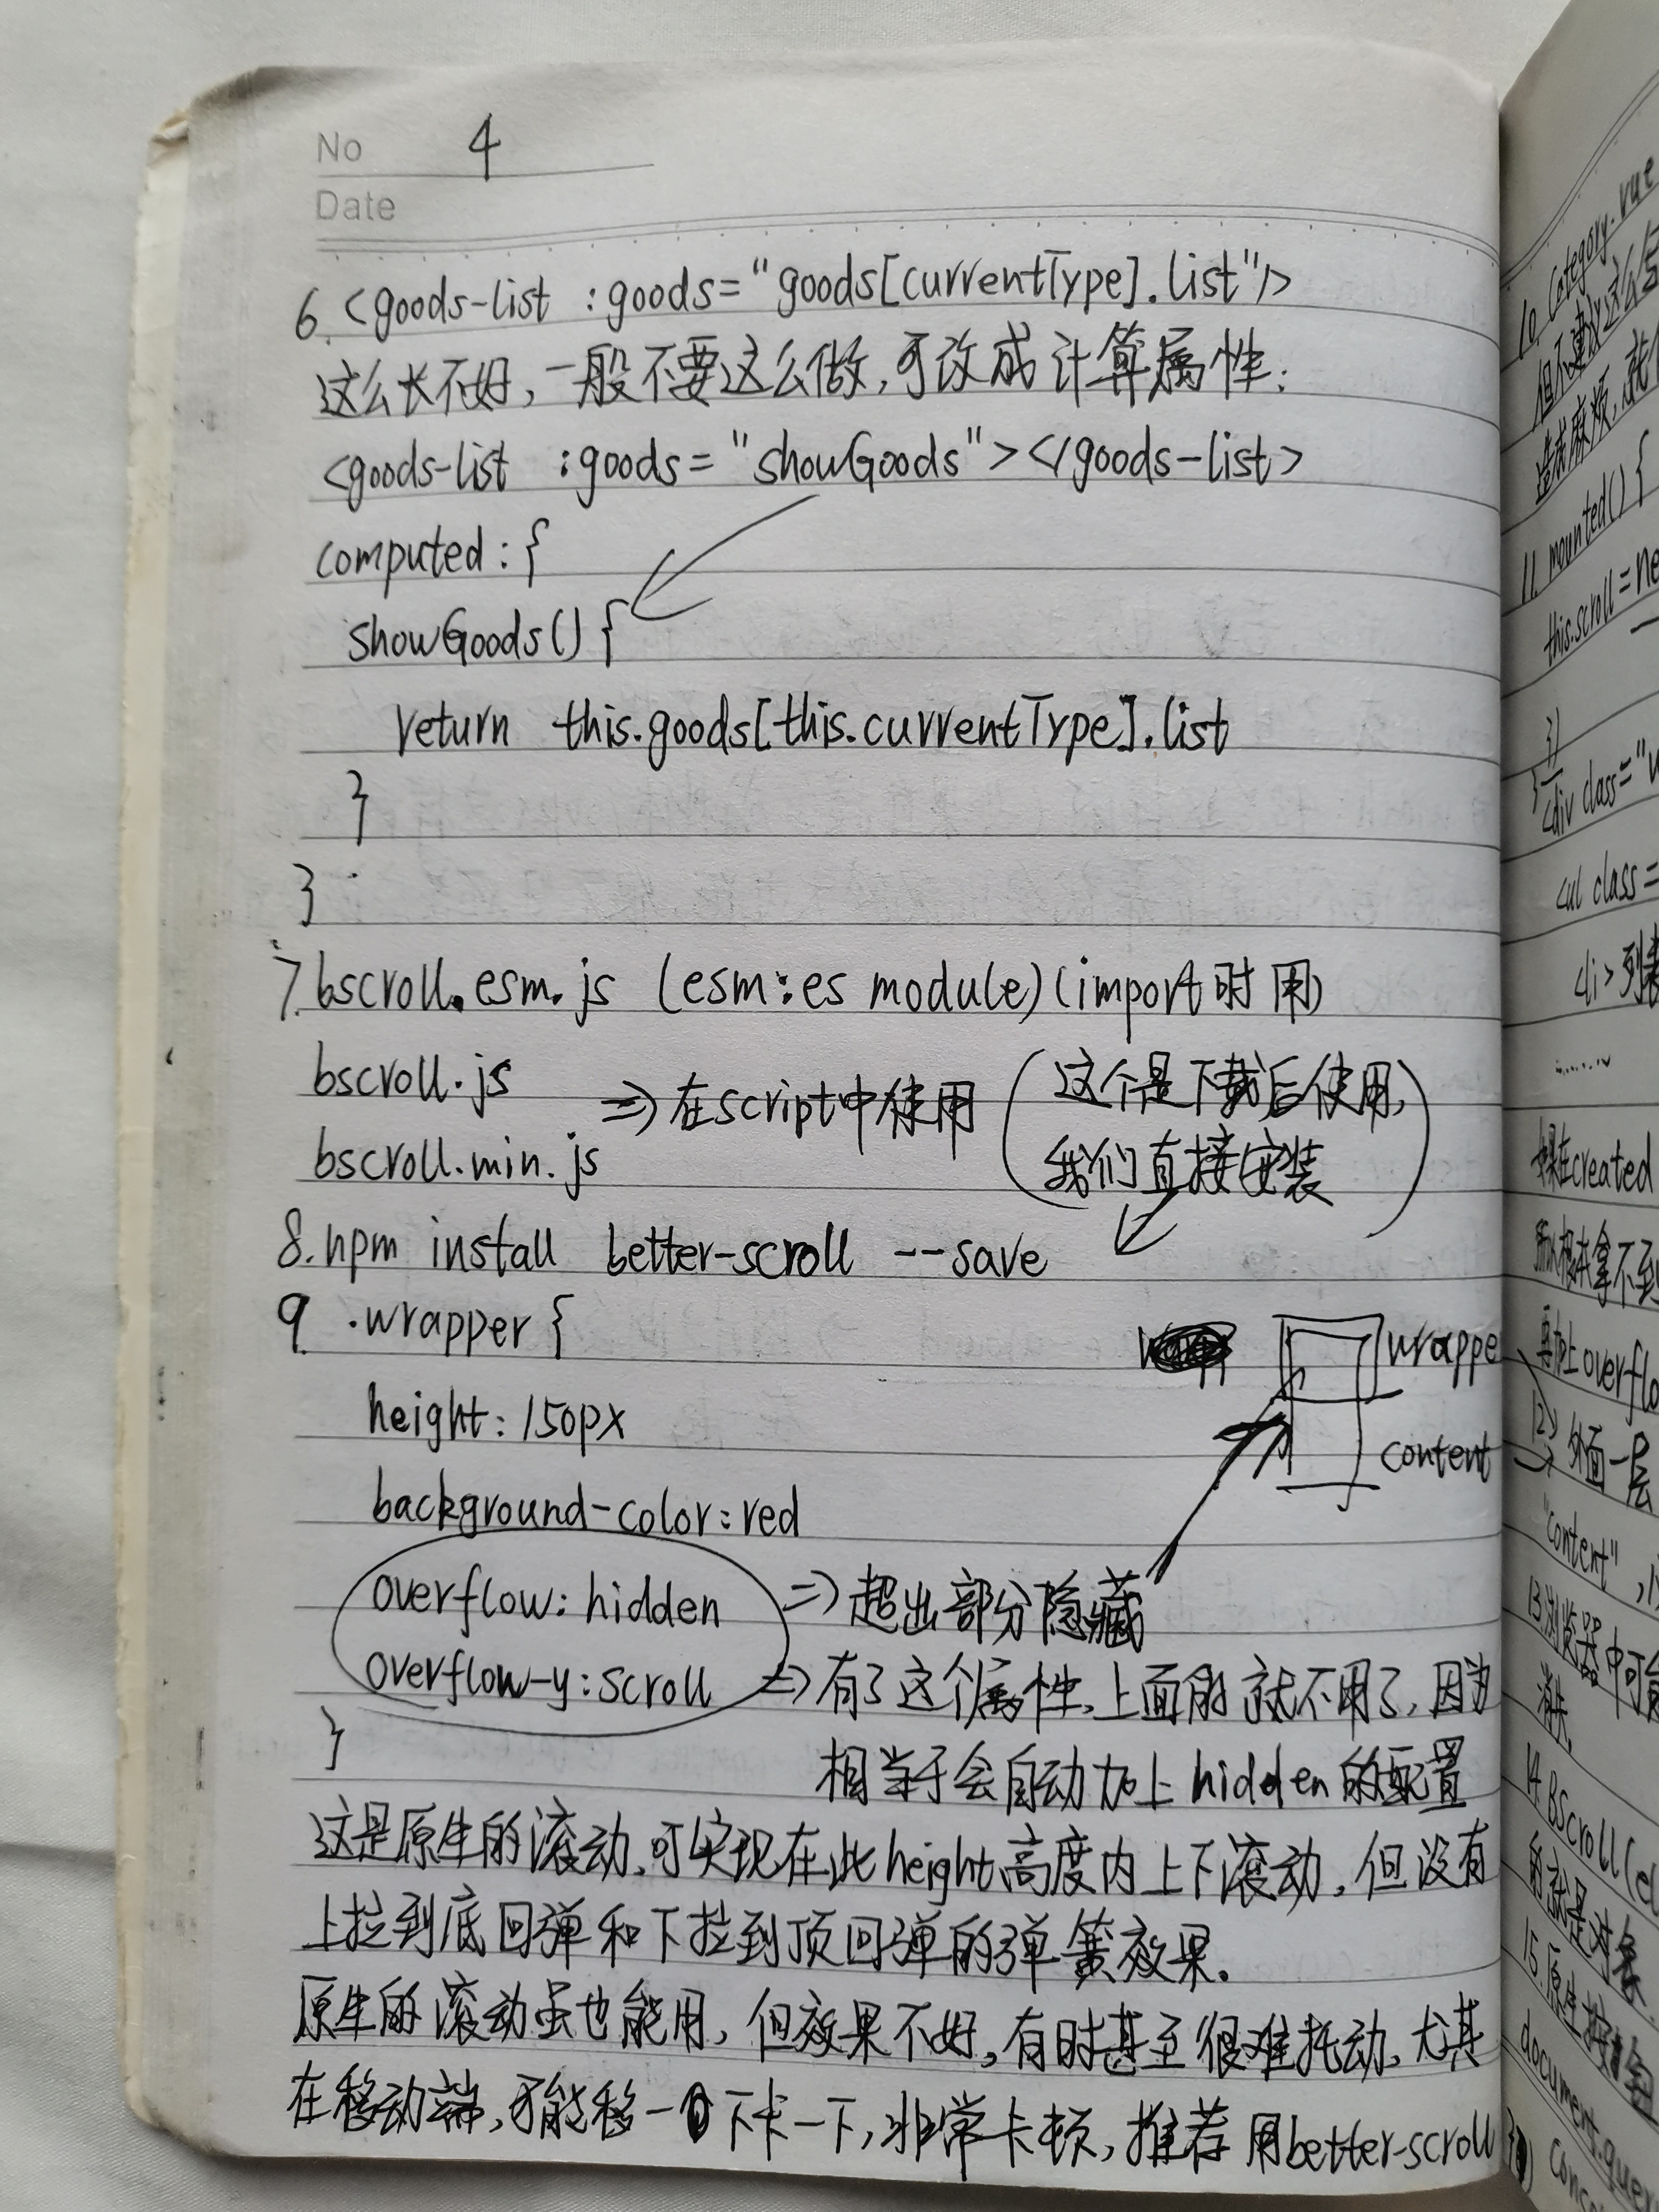 No 4
Date
6. <goods-list :goods="goods[currentType].list"/>
这么长不好,一般不要这么做,可改成计算属性:
<goods-list :goods="showGoods"></goods-list>
computed:{
showGoods(){
return this.goods[this.currentType].list
}
}
7. bscroll.esm.js (esm:es module)(import时用)
bscroll.js
=>在script中使用 (这个是下载后使用,
bscroll.min.js
我们直接安装)
8.npm install better-scroll --save
9. .wrapper{
wrappe
height:150px
content
background-color:red
overflow:hidden =>超出部分隐藏
overflow-y:scroll =>有了这个属性,上面的就不用了,因为
}
相当于会自动加上hidden的配置
这是原生的滚动,可实现在此height高度内上下滚动,但没有
上拉到底回弹和下拉到顶回弹的弹簧效果.
原生的滚动虽也能用,但效果不好,有时甚至很难拖动,尤其
在移动端,可能移一下卡一下,非常卡顿,推荐用better-scroll
10. Category.vue
但不建议这么
造成麻烦,就
11. mounted(){
this.scroll=ne
})
}
<div class="w
<ul class=
<li>列表
......
如果在created
所以根本拿不到
再加上overflo
12) 外面一层
"content",
13.浏览器中可能
消失
14.BScroll(el
的就是对象
15.原生按钮
document.quer
Conc